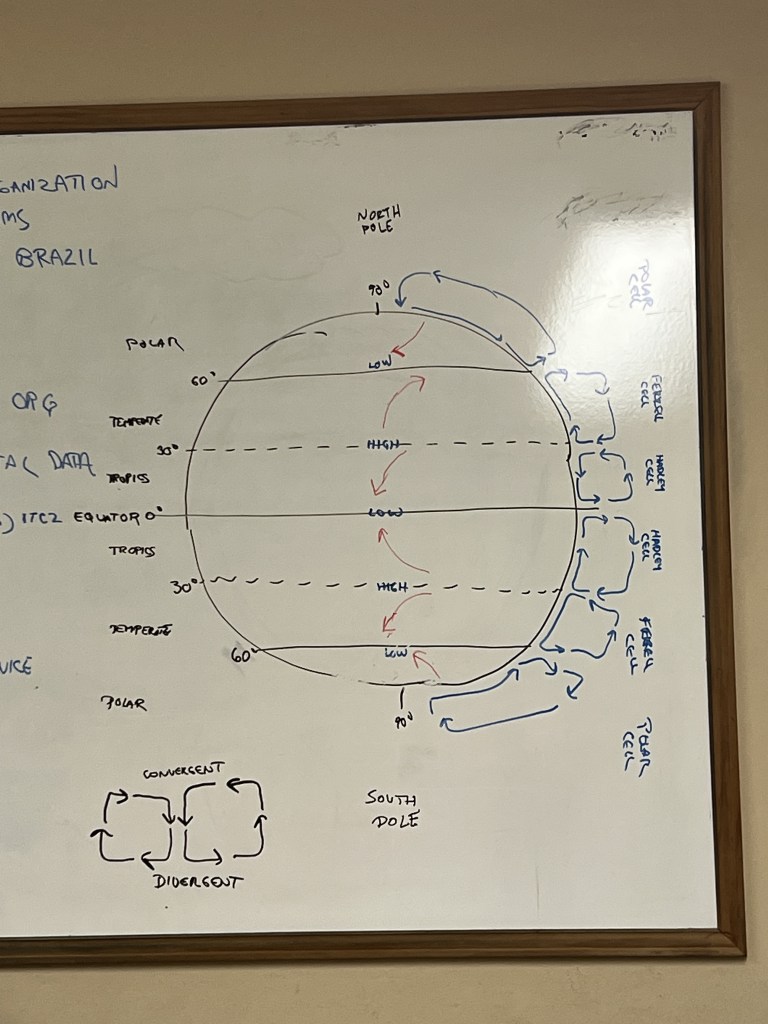 GANIZATION
MS
BRAZIL
ORG
TAC DATA
) ITCZ
VICE
NORTH
POLE
90°
POLAR
LOW
60°
TEMPERATE
30°
HIGH
TROPICS
EQUATOR 0°
LOW
TROPICS
30°
HIGH
TEMPERATE
60°
LOW
POLAR
90°
SOUTH
POLE
POLAR
CELL
FERREL
CELL
HADLEY
CELL
HADLEY
CELL
FERREL
CELL
POLAR
CELL
CONVERGENT
DIVERGENT